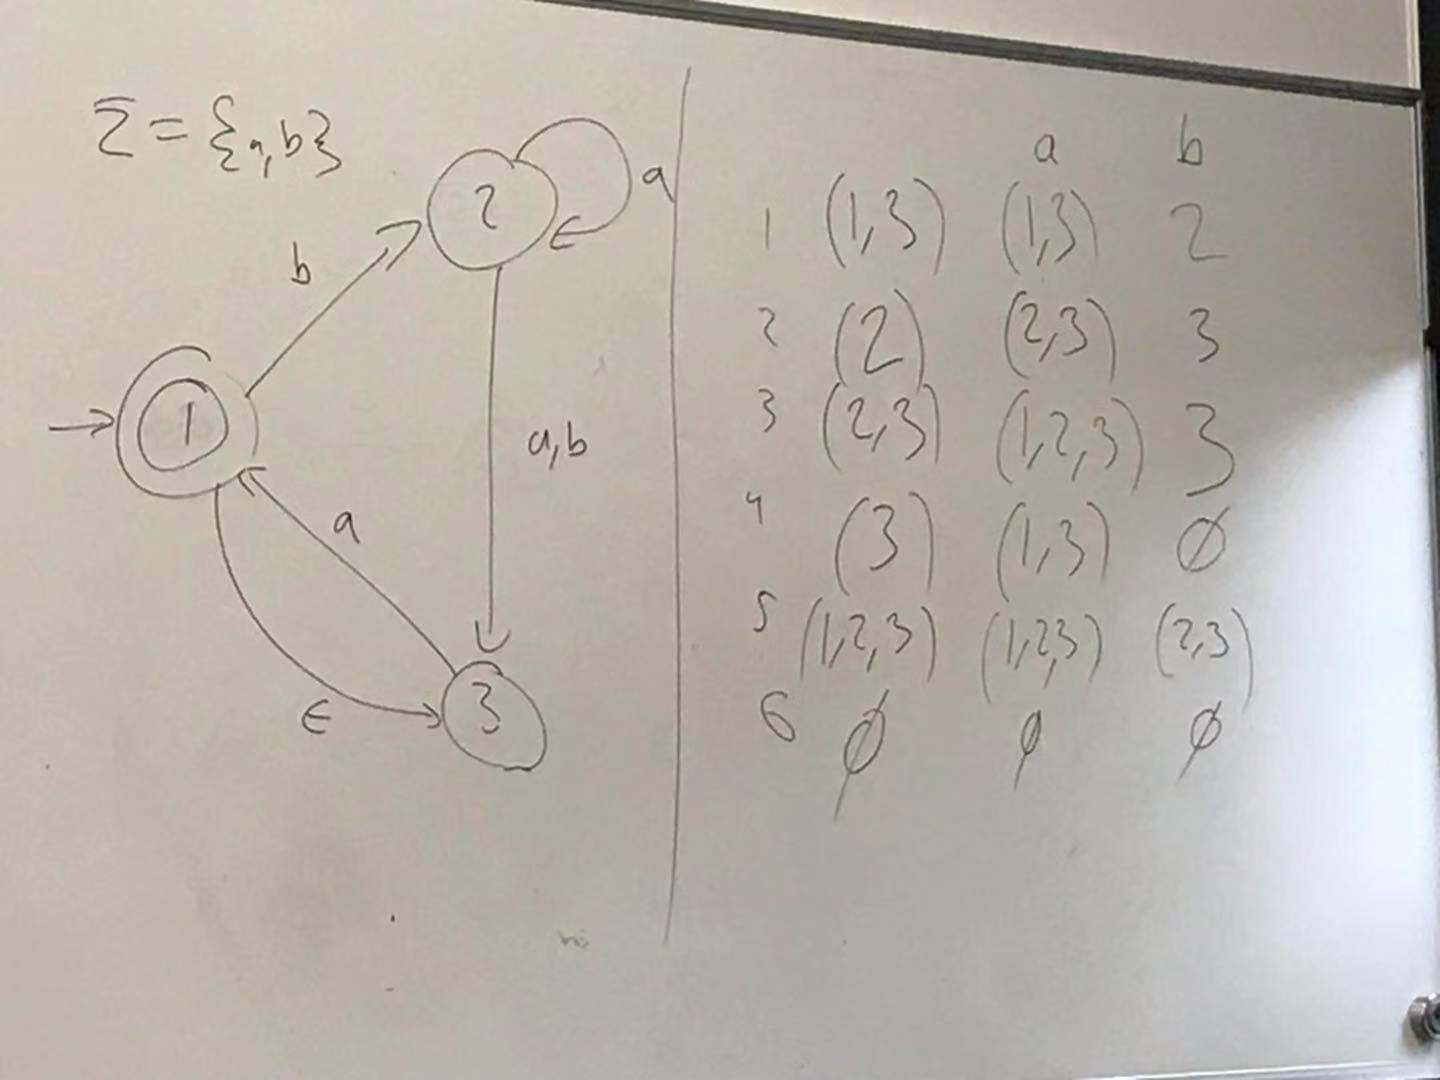 Σ = {a,b}
2
a
b
1
a,b
a
ϵ
3
a b
1 (1,3) (1,3) 2
2 (2) (2,3) 3
3 (2,3) (1,2,3) 3
4 (3) (1,3) ∅
5 (1,2,3) (1,2,3) (2,3)
6 ∅ ∅ ∅